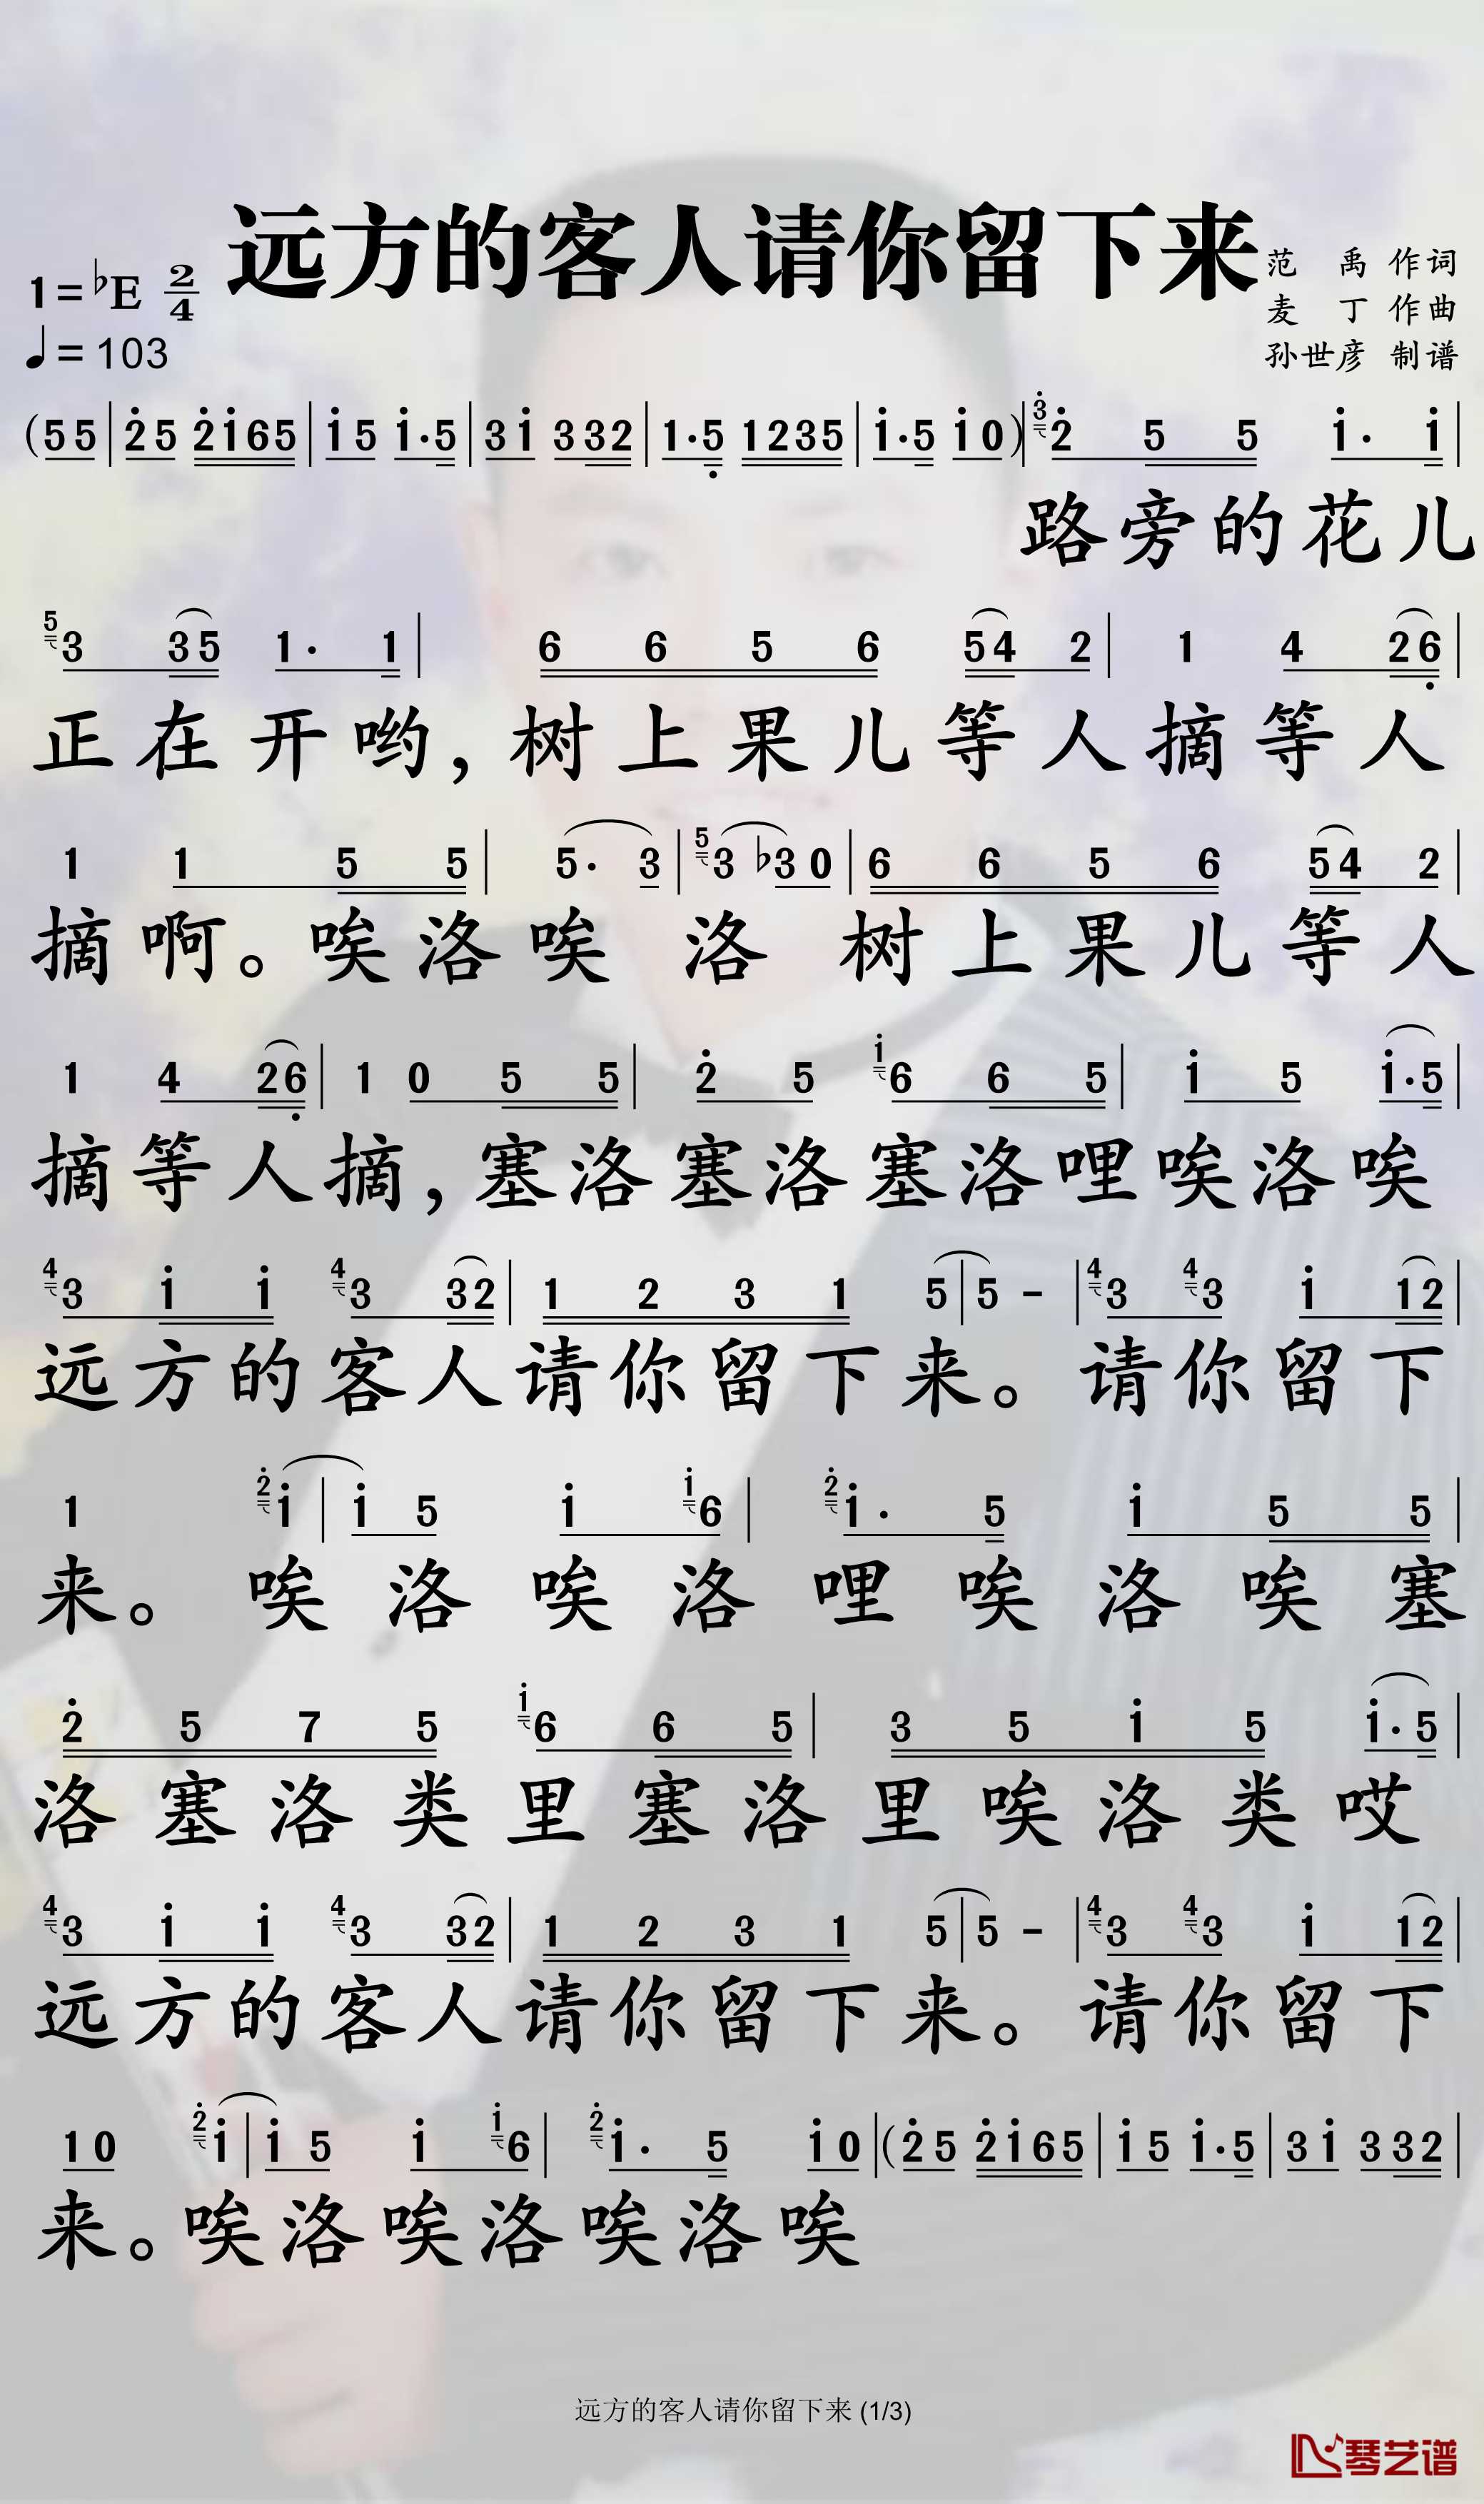 远方的客人请你留下来
1=♭E 2/4
♩=103
范 禹 作词
麦 丁 作曲
孙世彦 制谱
(5 5 | 2̇ 5 2̇ i̇ 6 5 | i̇ 5 i̇ · 5 | 3 i̇ 3 3 2 | 1 · 5̣ 1 2 3 5 | i̇ · 5 i̇ 0) | 3̇ 2̇ 5 5 i̇ · i̇ |
路旁的花儿
5 3 3 5 1 · 1 | 6 6 5 6 5 4 2 | 1 4 2 6̣ |
正在开哟,树上果儿等人摘等人
1 1 5 5 | 5 · 3 | 5 3 ♭3 0 | 6 6 5 6 5 4 2 |
摘啊。唉洛唉 洛 树上果儿等人
1 4 2 6̣ | 1 0 5 5 | 2̇ 5 i̇ 6 6 5 | i̇ 5 i̇ · 5 |
摘等人摘,塞洛塞洛塞洛哩唉洛唉
4 3 i̇ i̇ 4 3 3 2 | 1 2 3 1 5 | 5 - | 4 3 4 3 i̇ 1 2 |
远方的客人请你留下来。请你留下
1 2̇ i̇ | i̇ 5 i̇ i̇ 6 | 2̇ i̇ · 5 i̇ 5 5 |
来。唉洛唉洛哩唉洛唉塞
2̇ 5 7 5 i̇ 6 6 5 | 3 5 i̇ 5 i̇ · 5 |
洛塞洛类里塞洛里唉洛类哎
4 3 i̇ i̇ 4 3 3 2 | 1 2 3 1 5 | 5 - | 4 3 4 3 i̇ 1 2 |
远方的客人请你留下来。请你留下
1 0 2̇ i̇ | i̇ 5 i̇ i̇ 6 | 2̇ i̇ · 5 i̇ 0 | (2̇ 5 2̇ i̇ 6 5 | i̇ 5 i̇ · 5 | 3 i̇ 3 3 2 |
来。唉洛唉洛唉洛唉
远方的客人请你留下来 (1/3)
琴艺谱